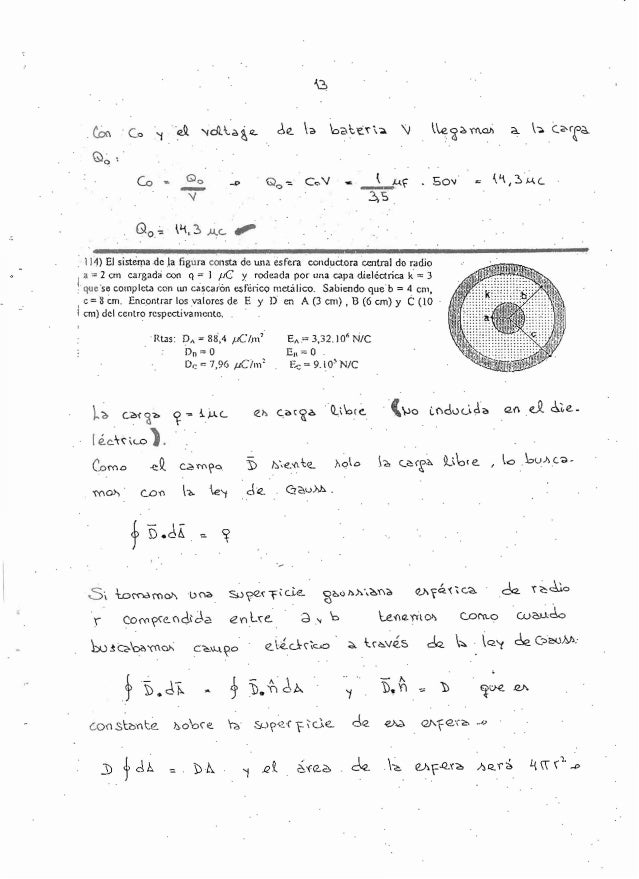 13
Con Co y el voltaje de la batería V llegamos a la carga
Qo:
Co = Qo/V → Qo = CoV = 1/3,5 μF . 50V = 14,3 μC
Qo = 14,3 μC
114) El sistema de la figura consta de una esfera conductora central de radio
a = 2 cm cargada con q = 1 μC y rodeada por una capa dieléctrica k = 3
que se completa con un cascarón esférico metálico. Sabiendo que b = 4 cm,
c = 8 cm. Encontrar los valores de E y D en A (3 cm) , B (6 cm) y C (10
cm) del centro respectivamente.
Rtas: D_A = 88,4 μC/m² E_A = 3,32.10⁶ N/C
D_B = 0 E_B = 0
D_C = 7,96 μC/m² E_C = 9.10⁵ N/C
k b
a
c
La carga q = 1μC es carga libre (No inducida en el die-
léctrico).
Como el campo D̄ siente solo la carga libre, lo busca-
mos con la ley de Gauss.
∮ D̄.dĀ = q
Si tomamos una superficie gaussiana esférica de radio
r comprendida entre a y b tenemos como cuando
buscabamos campo eléctrico a través de la ley de Gauss:
∮ D̄.dĀ = ∮ D̄.n̂ dA y D̄.n̂ = D que es
constante sobre la superficie de esa esfera →
D ∮ dA = D.A y el área de la esfera será 4πr² →